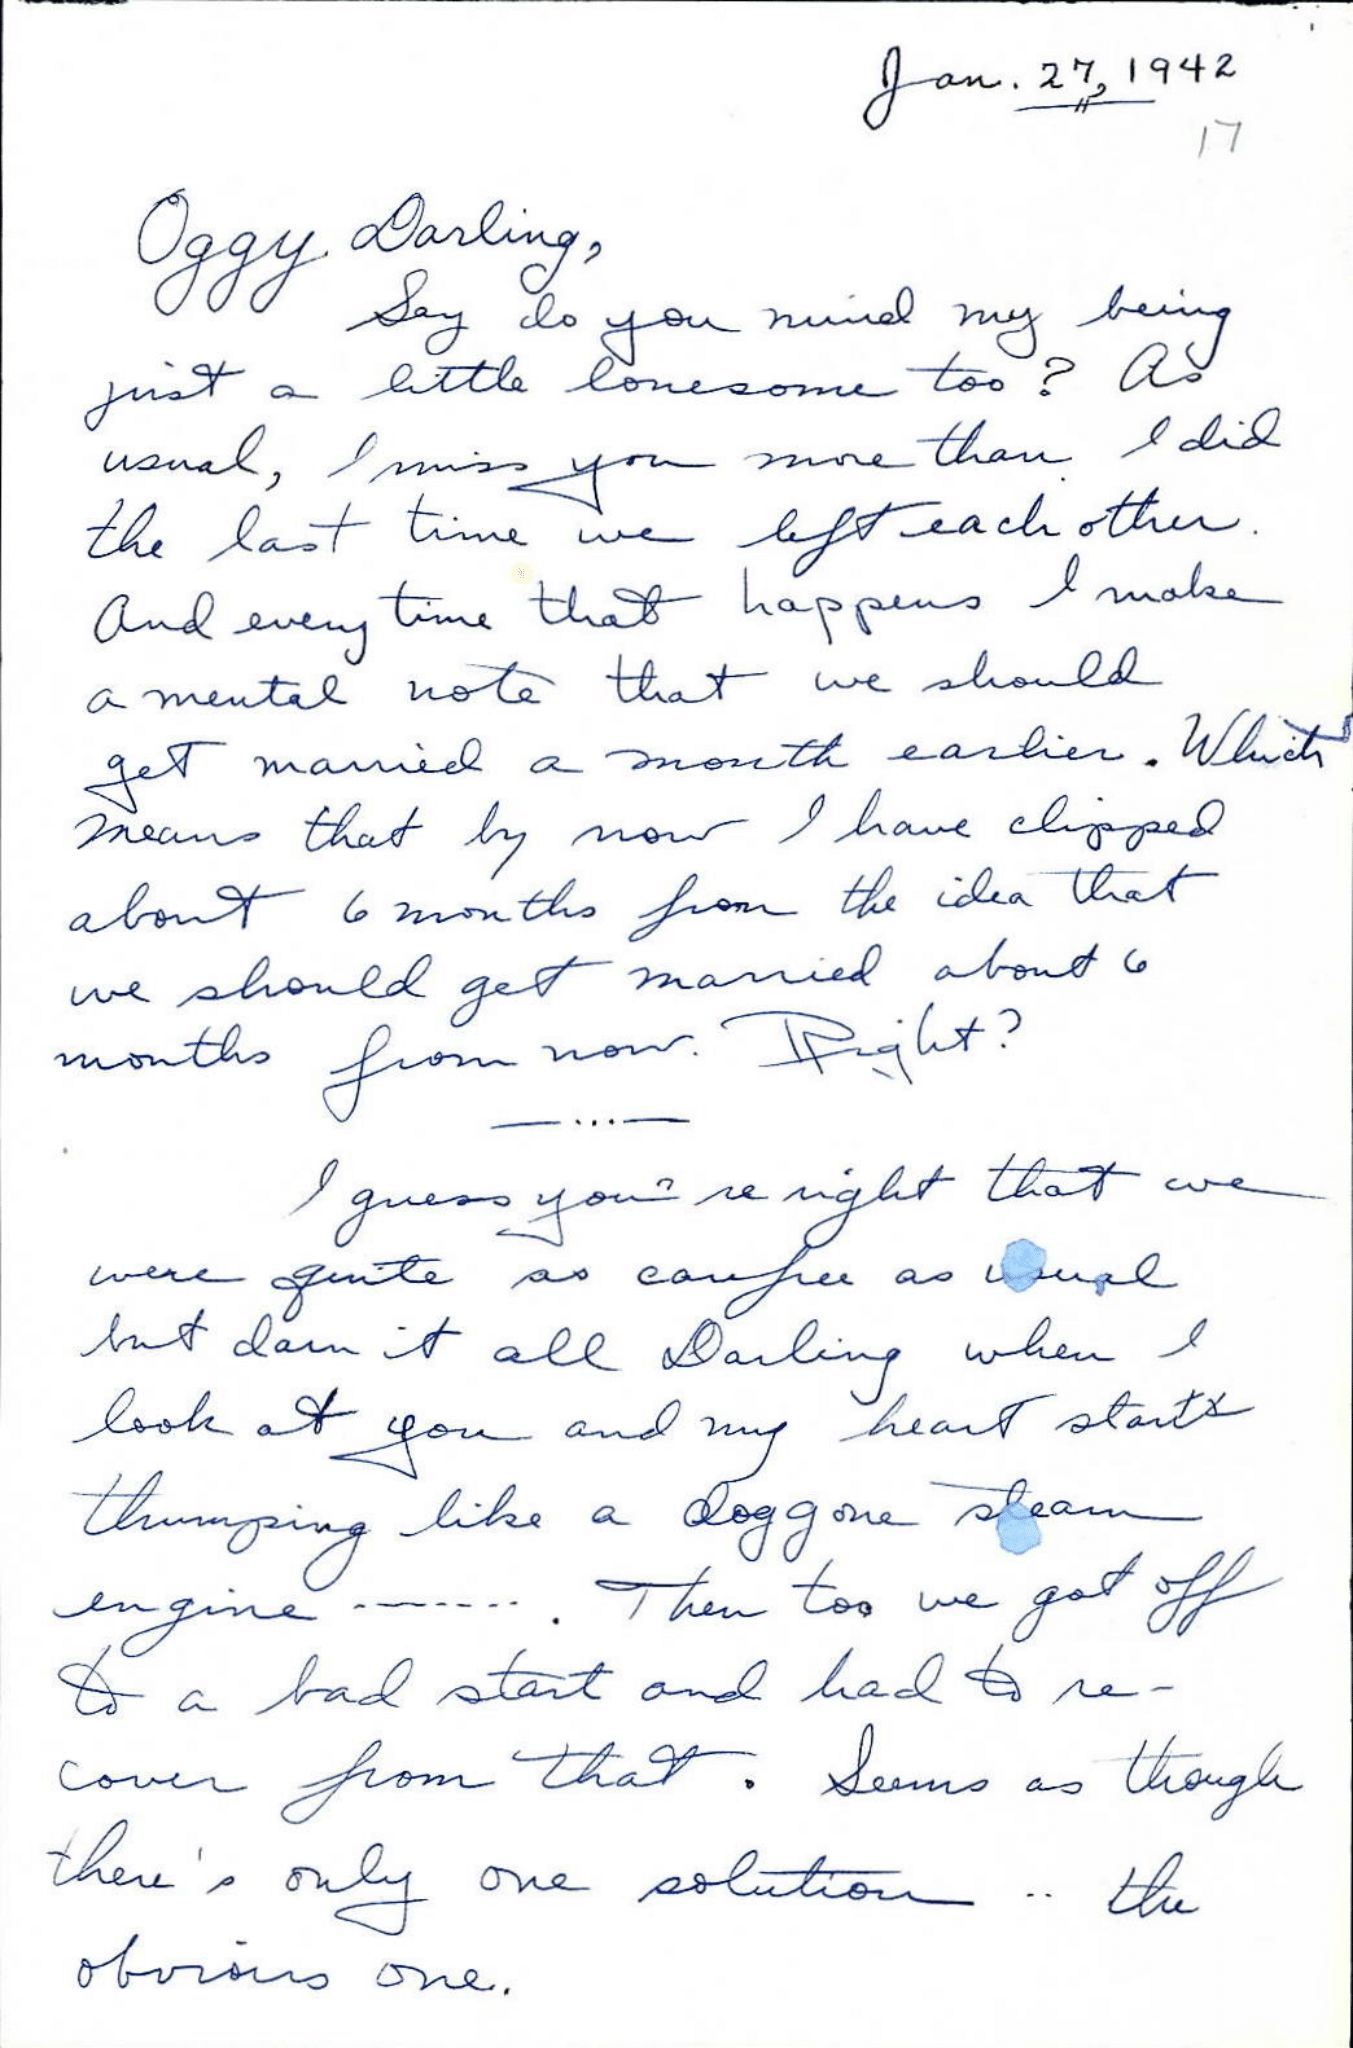 Jan. 27, 1942
17
Oggy Darling,
Say do you mind my being
just a little lonesome too? As
usual, I miss you more than I did
the last time we left each other.
And every time that happens I make
a mental note that we should
get married a month earlier. Which
means that by now I have clipped
about 6 months from the idea that
we should get married about 6
months from now. Right?
— ... —
I guess you're right that we
were quite as carefree as usual
but darn it all Darling when I
look at you and my heart starts
thumping like a doggone steam
engine -------. Then too we got off
to a bad start and had to re-
cover from that. Seems as though
there's only one solution .. the
obvious one.